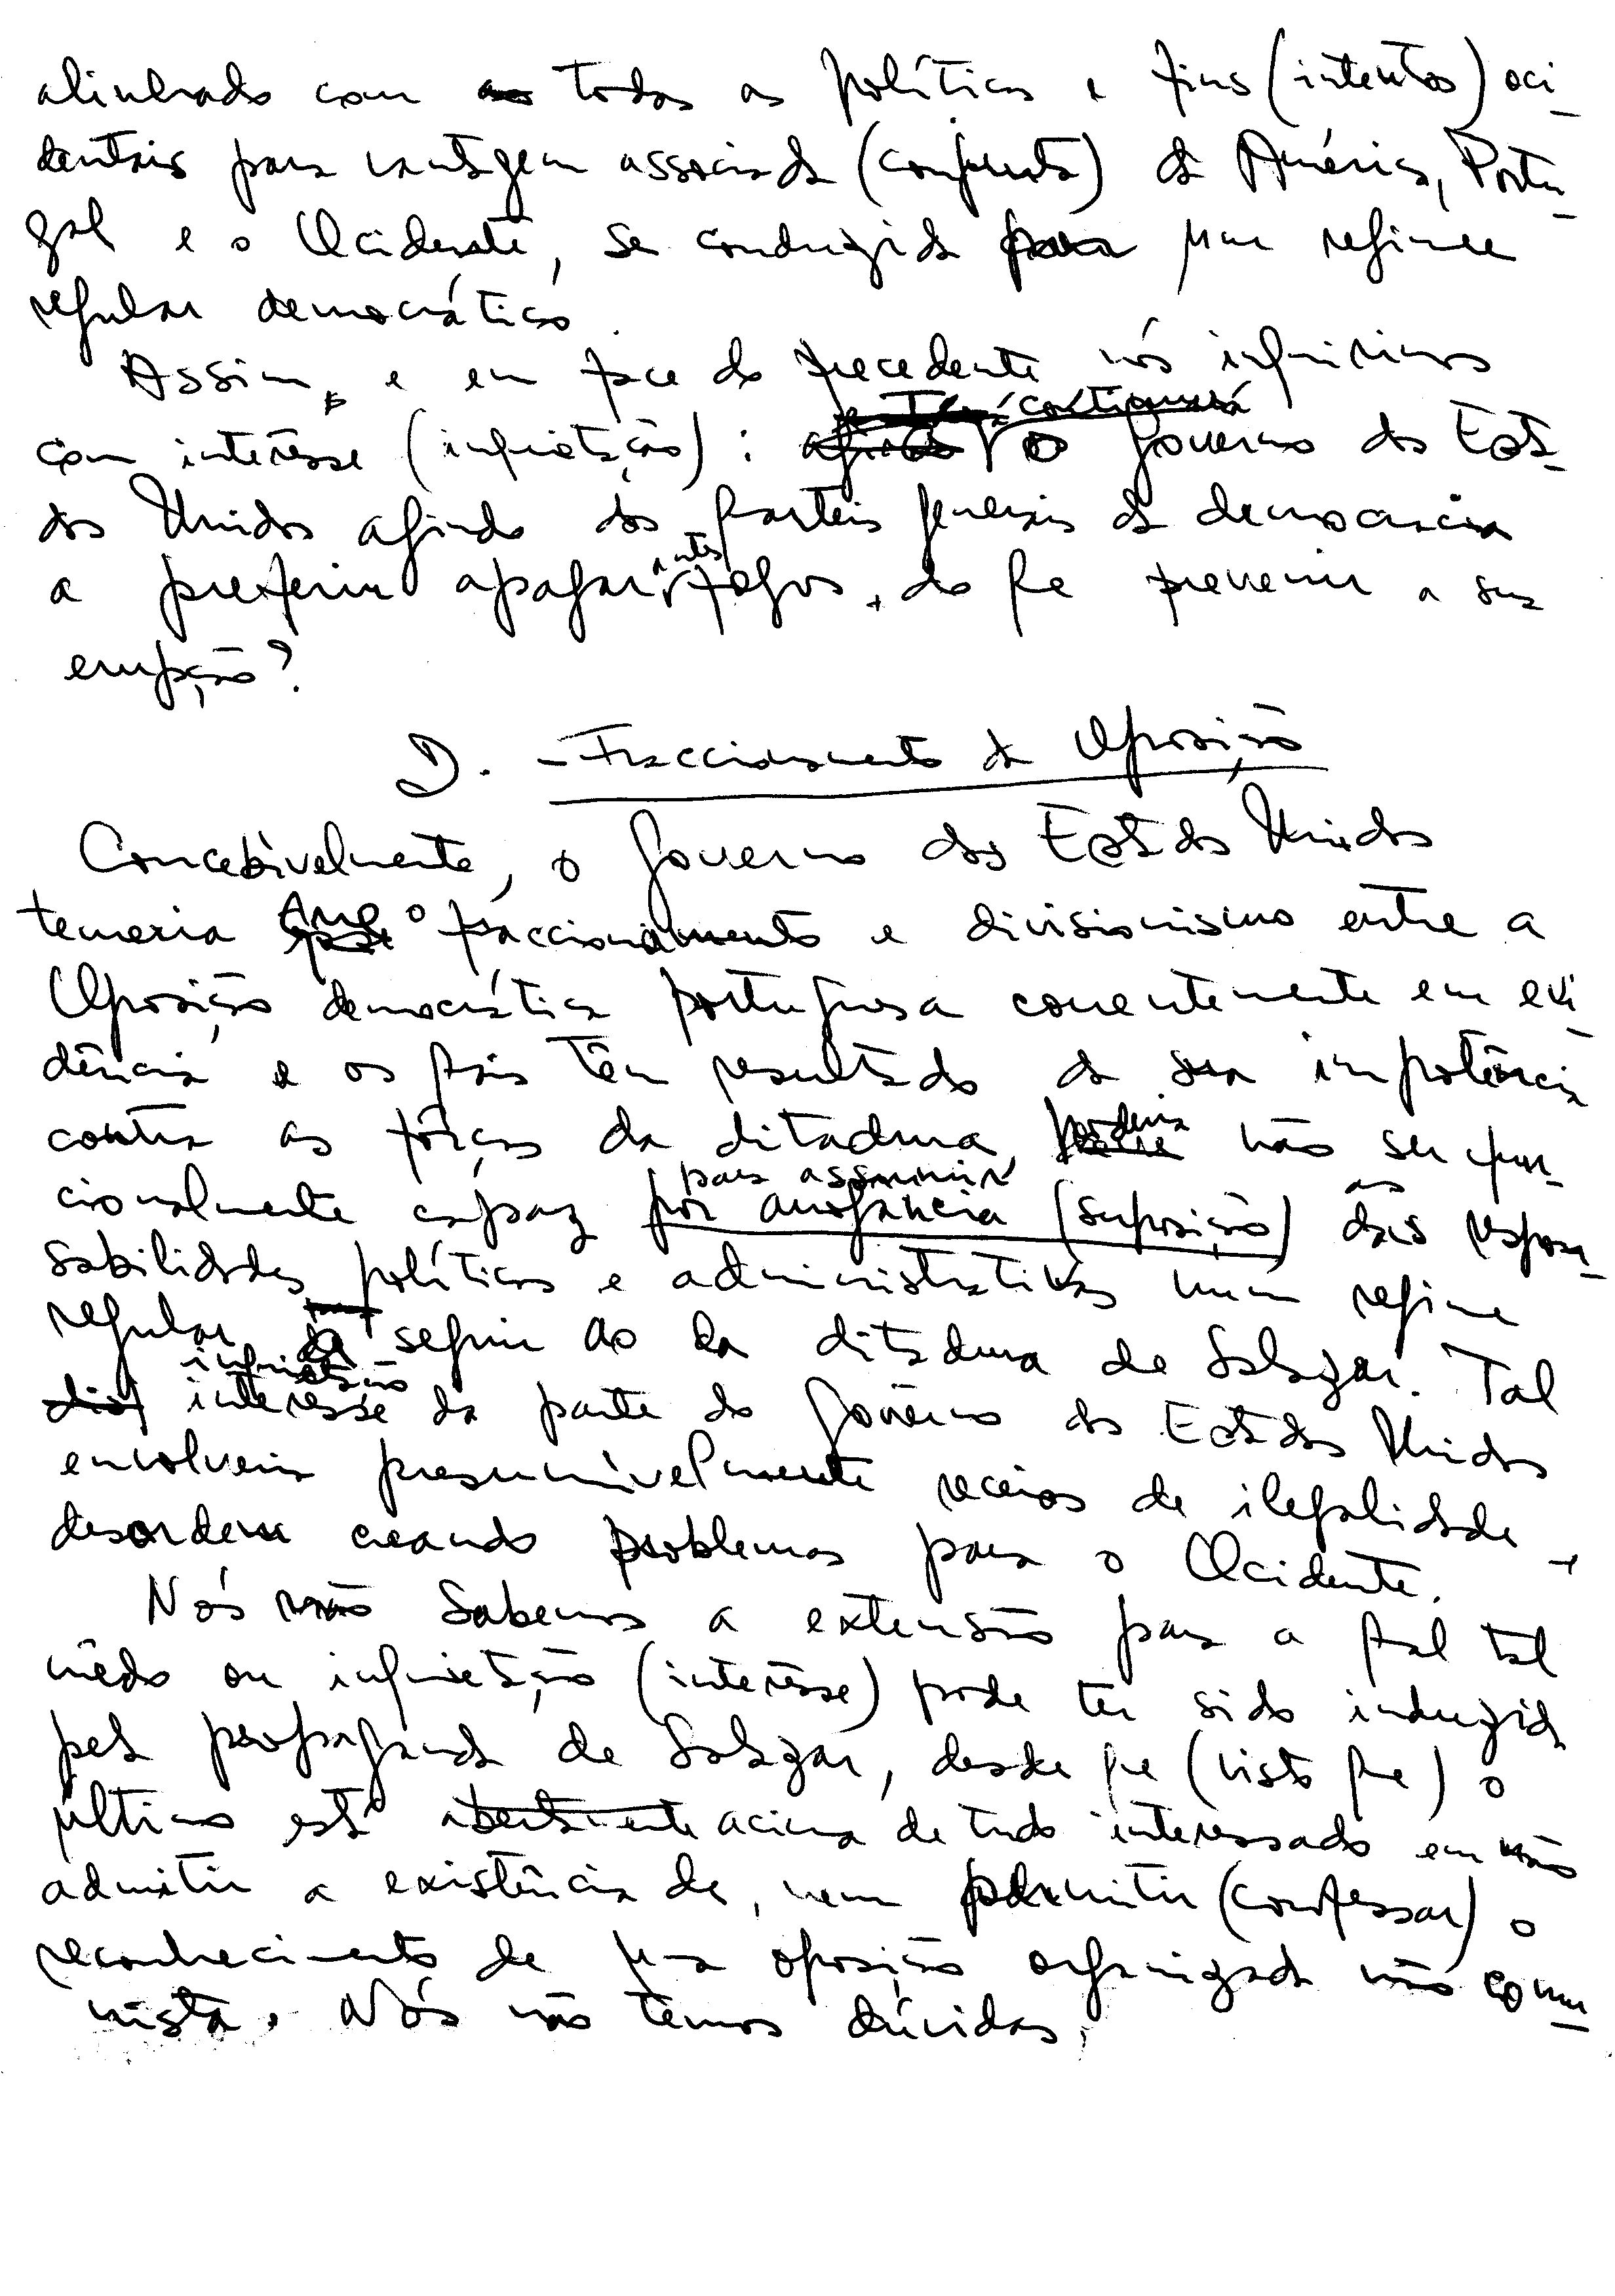 alinhado com todas as políticas e fins (intentos) oci-
dentais para vantagem associada (conjunta) da América, Portu-
gal e o Ocidente, se conduzida por um regime
regular democrático.
Assim, e em face do precedente nós inquirimos
com interêsse (inquietação): continuará o Governo dos Esta-
dos Unidos ajindo dos quarteis generais da democracia
a preferir apagar antes fogos, do que prevenir a sua
erupção?
D. - Fraccionamento da Oposição
Concebivelmente, o Governo dos Estados Unidos
temeria que o fraccionamento e divisionismo entre a
Oposição democrática portuguesa correntemente em evi-
dência e os quais têm resultado da sua impotência
contra as fôrças da ditadura, poderia não ser fun-
cionalmente capaz para assumir
por arrogância (suposição) as das respon-
sabilidades políticas e administrativas num regime
regular a seguir ao da ditadura de Salazar. Tal
inquietação
interesse da parte do Govêrno dos Estados Unidos
envolveria presumívelmente receios de ilegalidade e
desordem creando problemas para o Ocidente.
Nós não sabemos a extensão para a qual tal
mêdo ou inquietação (interêsse) pode ter sido induzida
pela propaganda de Salazar, desde que (visto que) o
último está abertamente acima de tudo interessado em não
admitir a existência de, nem permitir (confessar) o
reconhecimento de uma oposição organizada não comu-
nista. Nós não temos dúvidas,